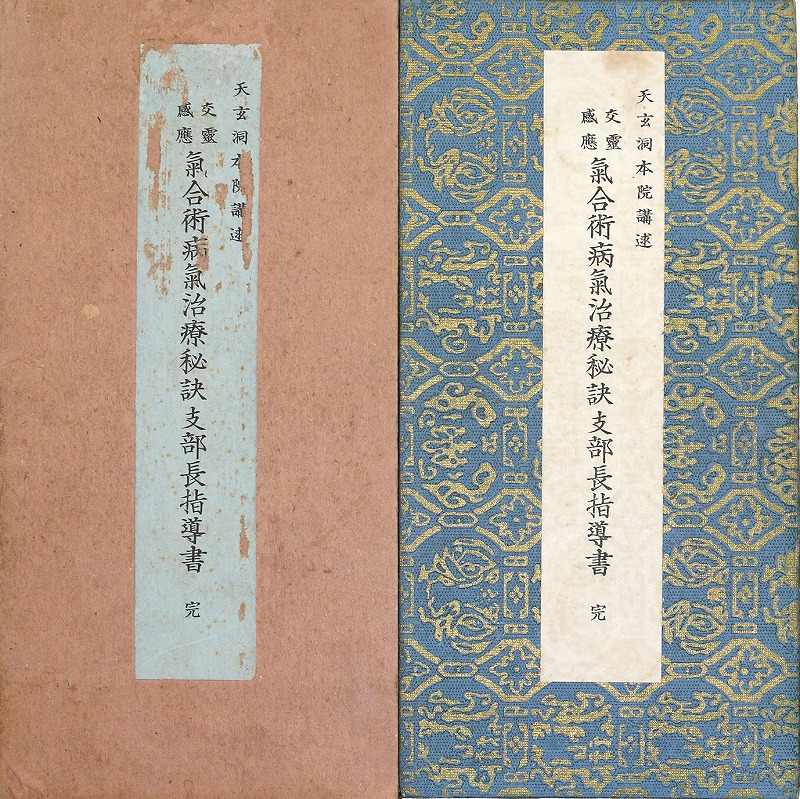 天玄洞本院講述
交靈
感應
氣合術病氣治療秘訣支部長指導書 完
天玄洞本院講述
交靈
感應
氣合術病氣治療秘訣支部長指導書 完